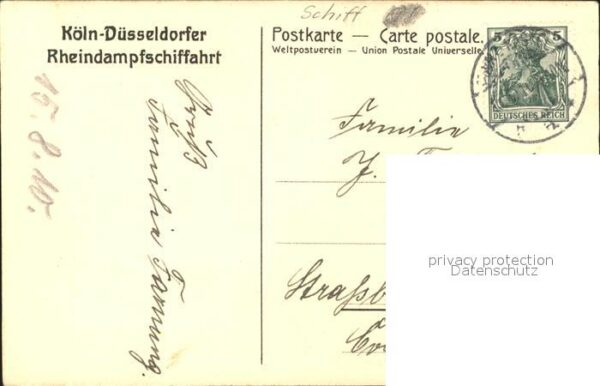 Schiff
Köln-Düsseldorfer
Rheindampfschiffahrt
Postkarte — Carte postale.
Weltpostverein — Union Postale Universelle
5 5
DEUTSCHES REICH
15.8.10.
Gruß
Familie
Familie
J.
Straßb
privacy protection
Datenschutz